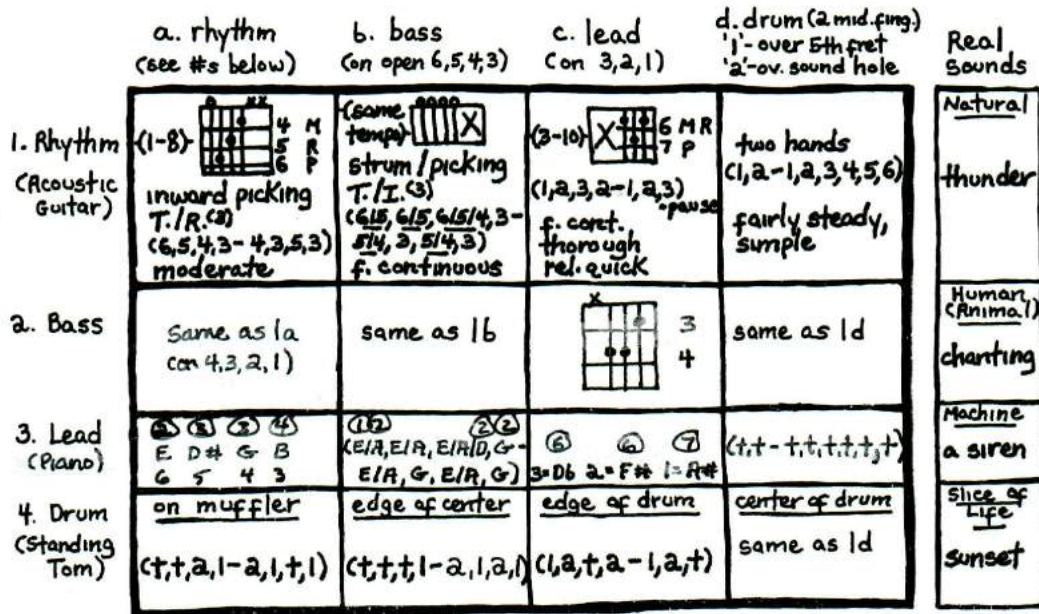 a. rhythm
(see #s below)
b. bass
(on open 6,5,4,3)
c. lead
(on 3,2,1)
d. drum (2 mid. fing.)
'1'-over 5th fret
'2'-ov. sound hole
Real
Sounds
1. Rhythm
(Acoustic
Guitar)
(1-8)
o xx
4 M
5 R
6 P
inward picking
T./R.(3)
(6,5,4,3-4,3,5,3)
moderate
(same
tempo)
oooo
X
strum/picking
T./I.(3)
(6/5, 6/5, 6/5/4, 3-
5/4, 3, 5/4, 3)
f. continuous
(3-10)
X
6 M R
7 P
(1,2,3,2-1,2,3)
-pause
f. cont.
thorough
rel. quick
two hands
(1,2-1,2,3,4,5,6)
fairly steady,
simple
Natural
thunder
2. Bass
same as 1a
(on 4,3,2,1)
same as 1b
x
3
4
same as 1d
Human
(Animal)
chanting
3. Lead
(Piano)
E D# G B
6 5 4 3
1 2 2 2
(E/A, E/A, E/A/D, G-
E/A, G, E/A, G)
6 6 7
3=Db 2=F# 1=A#
(t,t-t,t,t,t,t,t)
Machine
a siren
4. Drum
(Standing
Tom)
on muffler
(t,t,2,1-2,1,t,1)
edge of center
(t,t,t,1-2,1,2,1)
edge of drum
(1,2,t,2-1,2,t)
center of drum
same as 1d
Slice of
Life
sunset